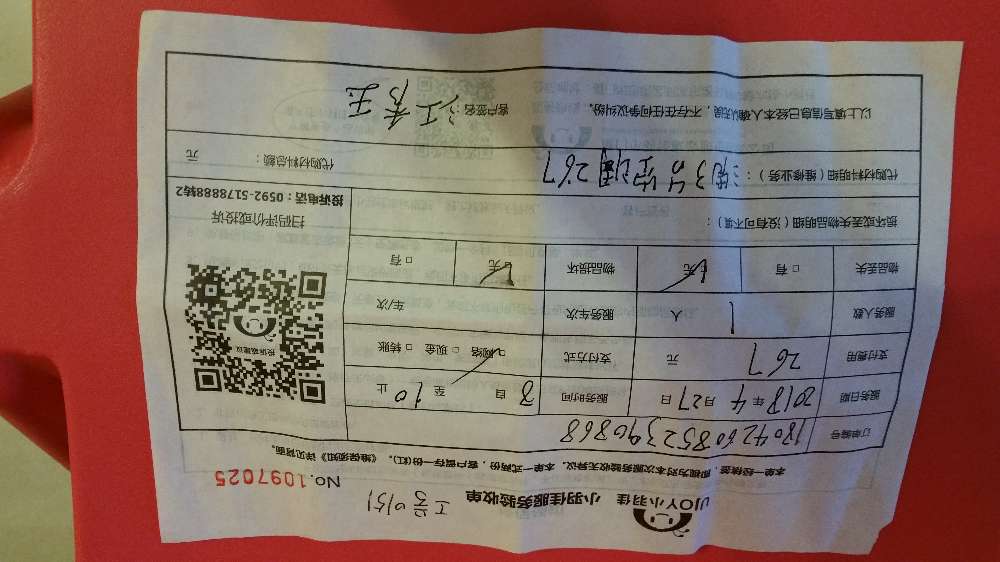 JJOY小羽佳 小羽佳服务验收单
No.1097025
本单一经核签,即视为对本次服务验收无异议。本单一式两份,客户留存一份(红)。《维保须知》详见背面。
订单编号 1804260852390868
服务日期 2018年4月27日 服务时间 自8至10止
支付费用 267 元 支付方式 网络 现金 转账
服务人数 1 人 服务车次 车/次
物品丢失 有 无 物品损坏 有 无
损坏或丢失物品明细(没有可不填):
扫码评价或投诉
投诉电话:0592-5178888转2
代购材料明细(维修业务): 空调267
代购材料总额: 元
以上填写信息已经本人确认无误,不存在任何争议纠纷。
客户签名:江秀玉